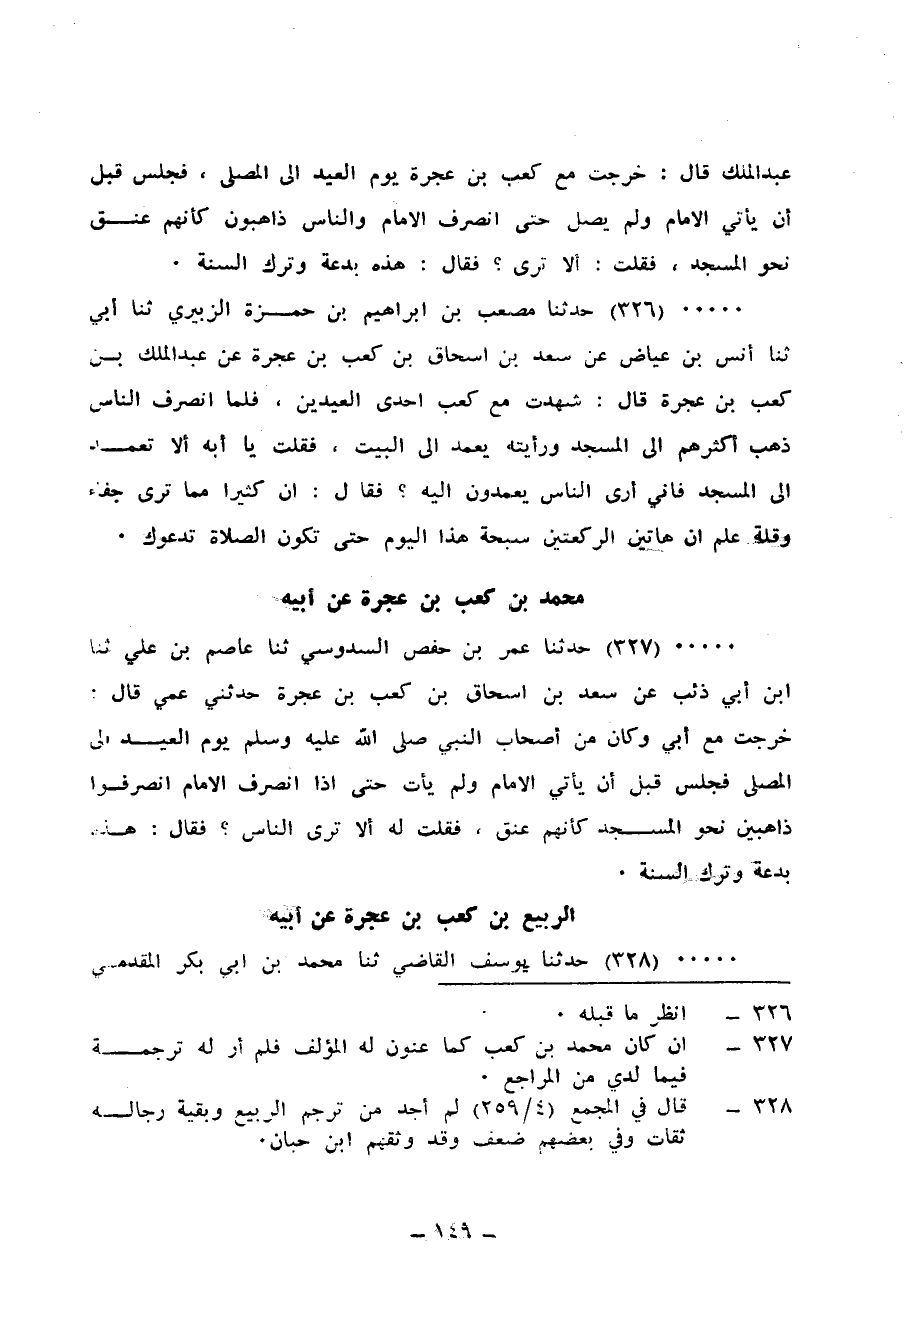 عبدالملك قال : خرجت مع كعب بن عجرة يوم العيد الى المصلى ، فجلس قبل
أن يأتي الامام ولم يصل حتى انصرف الامام والناس ذاهبون كأنهم عنـــق
نحو المسجد ، فقلت : ألا ترى ؟ فقال : هذه بدعة وترك السنة ٠
٠٠٠٠٠ (٣٢٦) حدثنا مصعب بن ابراهيم بن حمـــزة الزبيري ثنا أبي
ثنا أنس بن عياض عن سعد بن اسحاق بن كعب بن عجرة عن عبدالملك بـــن
كعب بن عجرة قال : شهدت مع كعب احدى العيدين ، فلما انصرف الناس
ذهب أكثرهم الى المسجد ورأيته يعمد الى البيت ، فقلت يا أبه ألا تعمـــد
الى المسجد فاني أرى الناس يعمدون اليه ؟ فقا ل : ان كثيرا مما ترى جفاء
وقلة علم ان هاتين الركعتين سبحة هذا اليوم حتى تكون الصلاة تدعوك ٠
محمد بن كعب بن عجرة عن أبيه
٠٠٠٠٠ (٣٢٧) حدثنا عمر بن حفص السدوسي ثنا عاصم بن علي ثنا
ابن أبي ذئب عن سعد بن اسحاق بن كعب بن عجرة حدثني عمي قال :
خرجت مع أبي وكان من أصحاب النبي صلى الله عليه وسلم يوم العيـــد الى
المصلى فجلس قبل أن يأتي الامام ولم يأت حتى اذا انصرف الامام انصرفـوا
ذاهبين نحو المســـجد كأنهم عنق ، فقلت له ألا ترى الناس ؟ فقال : هـذه
بدعة وترك السنة ٠
الربيع بن كعب بن عجرة عن أبيه
٠٠٠٠٠ (٣٢٨) حدثنا يوسف القاضي ثنا محمد بن ابي بكر المقدمـي
٣٢٦ – انظر ما قبله ٠
٣٢٧ – ان كان محمد بن كعب كما عنون له المؤلف فلم أر له ترجمـــة
فيما لدي من المراجع ٠
٣٢٨ – قال في المجمع (٢٥٩/٤) لم أجد من ترجم الربيع وبقية رجالـــه
ثقات وفي بعضهم ضعف وقد وثقهم ابن حبان٠
– ١٤٩ –